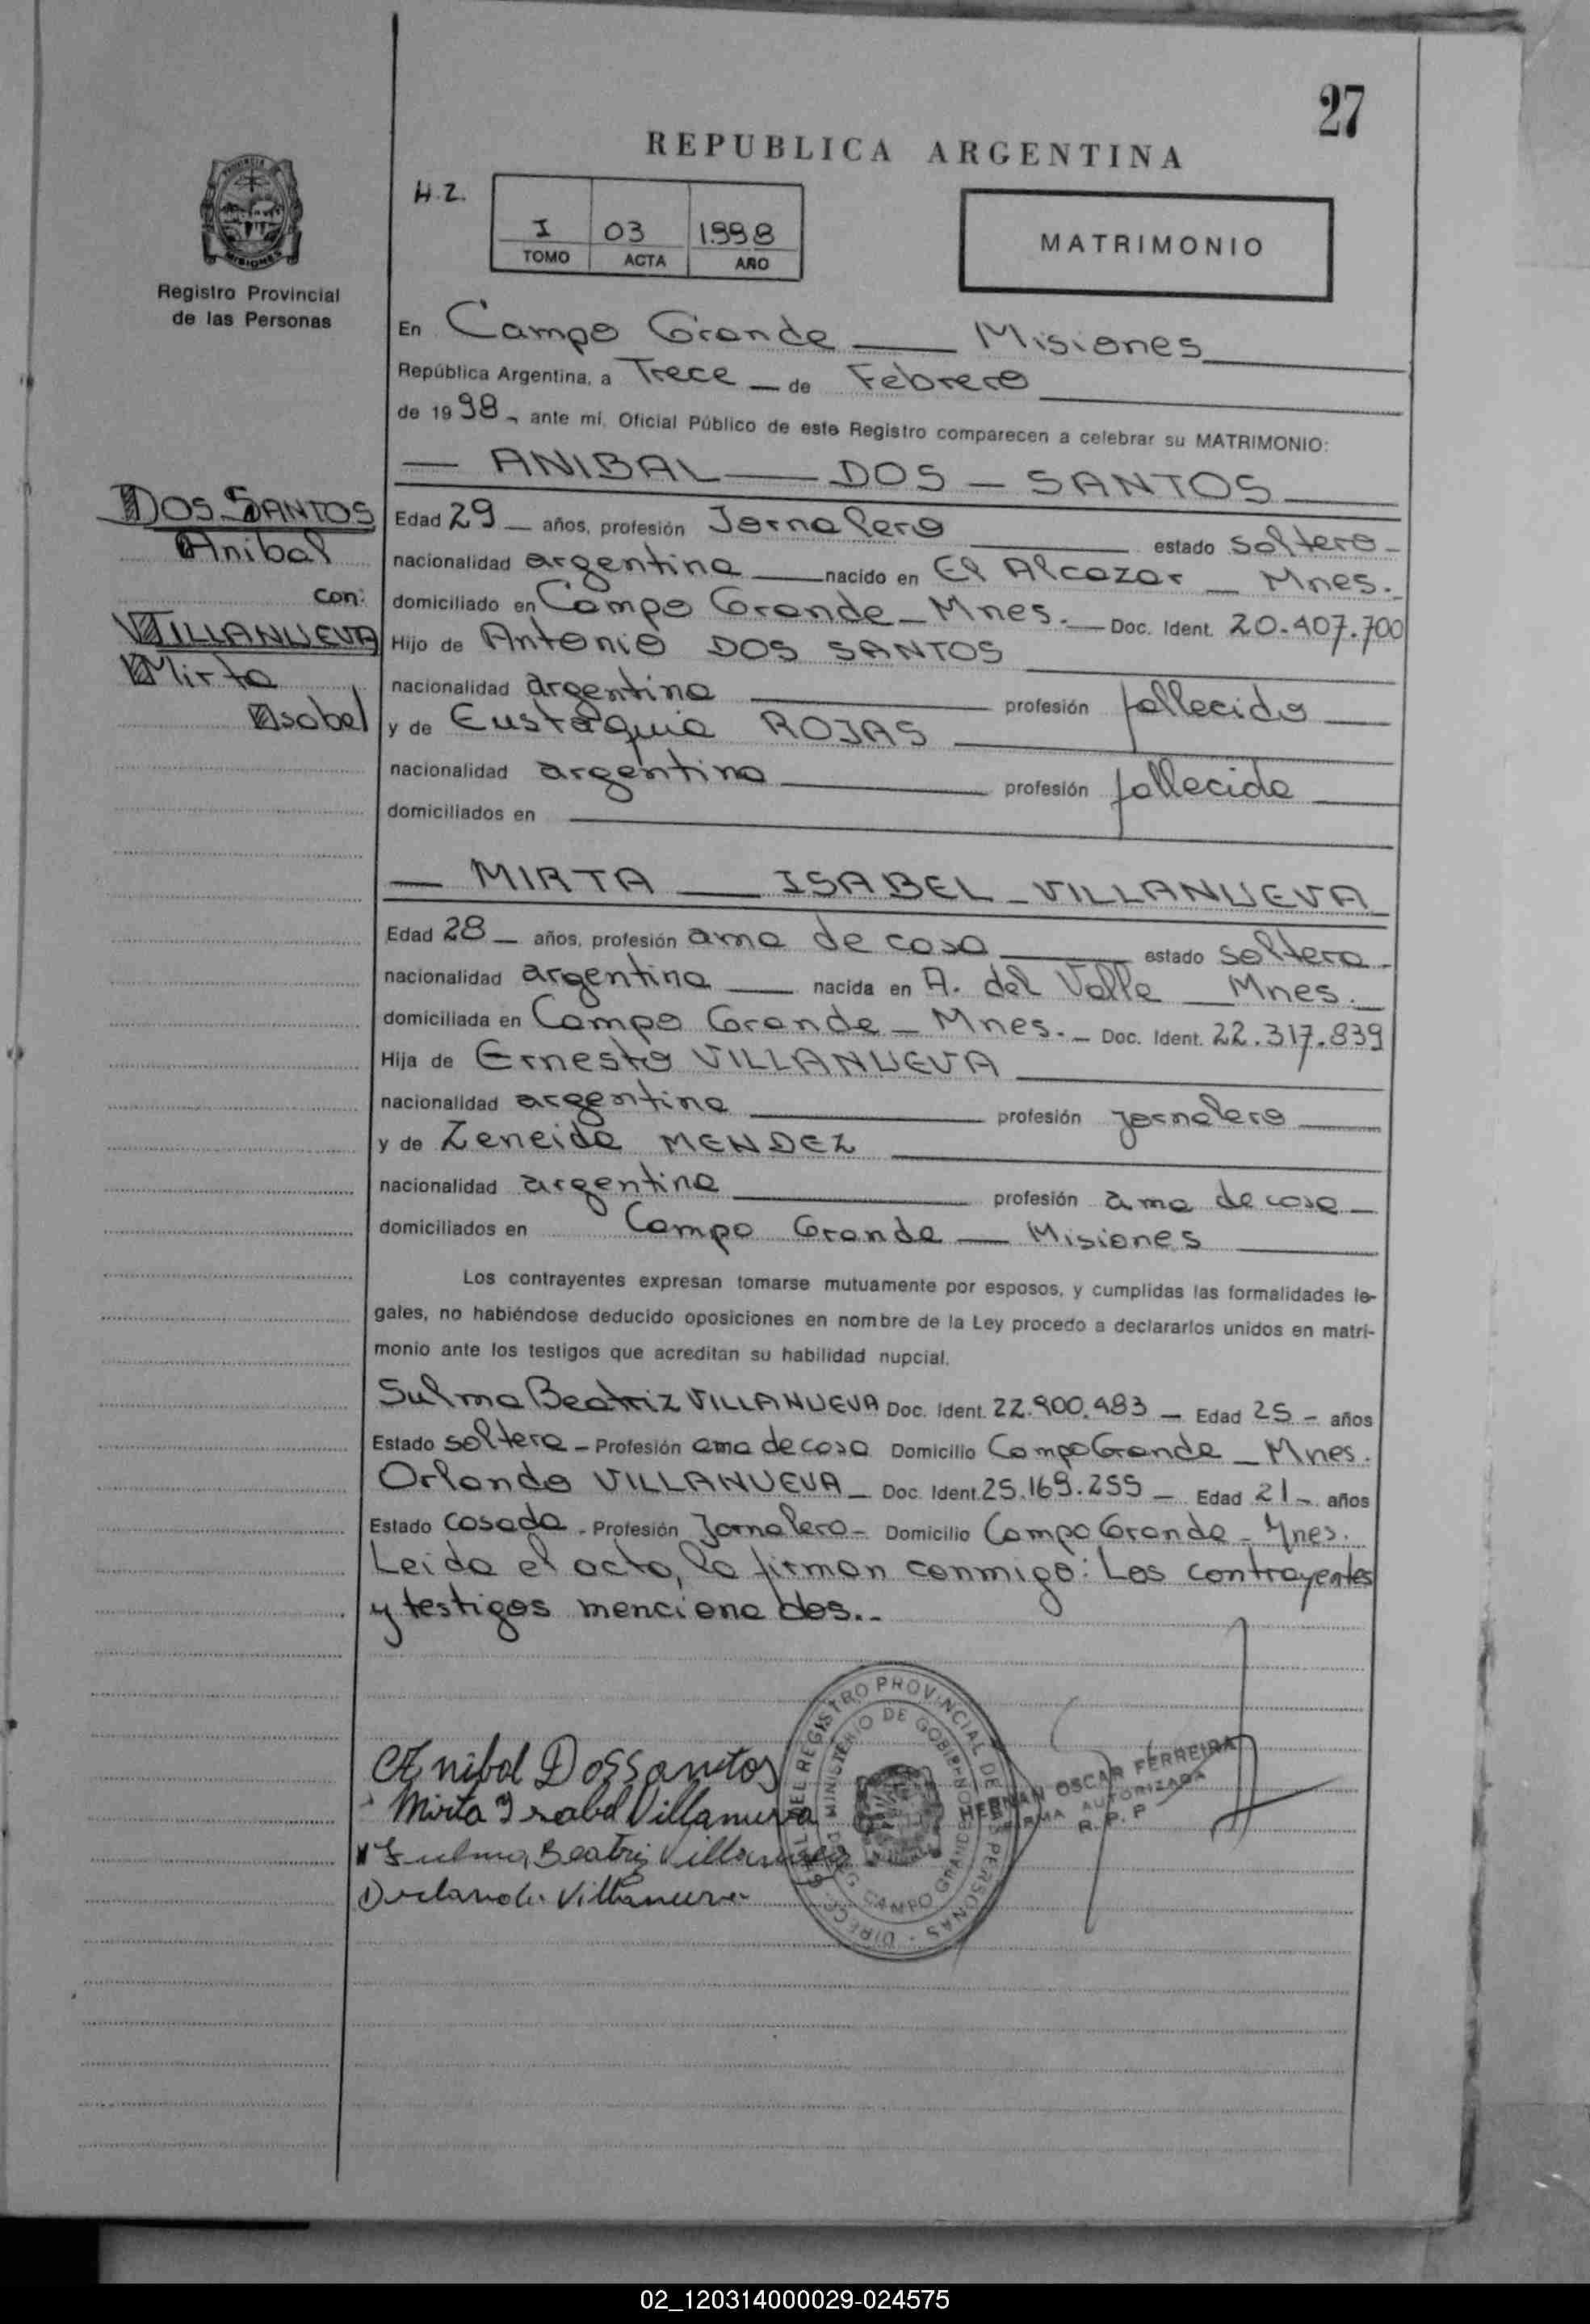 27
REPUBLICA ARGENTINA
H.Z.
I 03 1998
TOMO ACTA AÑO
MATRIMONIO
Registro Provincial
de las Personas
En Campo Grande Misiones
República Argentina, a Trece de Febrero
de 1998, ante mí, Oficial Público de este Registro comparecen a celebrar su MATRIMONIO:
ANIBAL DOS SANTOS
DOS SANTOS
Anibal
con:
VILLANUEVA
Mirta
Isabel
Edad 29 años, profesión Jornalero estado soltero
nacionalidad argentina nacido en El Alcazar Mnes.
domiciliado en Campo Grande Mnes. Doc. Ident. 20.407.700
Hijo de Antonio DOS SANTOS
nacionalidad argentina profesión fallecido
y de Eustaquia ROJAS
nacionalidad argentina profesión fallecida
domiciliados en
MIRTA ISABEL VILLANUEVA
Edad 28 años, profesión ama de casa estado soltera
nacionalidad argentina nacida en A. del Valle Mnes.
domiciliada en Campo Grande Mnes. Doc. Ident. 22.317.839
Hija de Ernesto VILLANUEVA
nacionalidad argentina profesión jornalero
y de Zeneida MENDEZ
nacionalidad argentina profesión ama de casa
domiciliados en Campo Grande Misiones
Los contrayentes expresan tomarse mutuamente por esposos, y cumplidas las formalidades le-
gales, no habiéndose deducido oposiciones en nombre de la Ley procedo a declararlos unidos en matri-
monio ante los testigos que acreditan su habilidad nupcial.
Sulma Beatriz VILLANUEVA Doc. Ident. 22.900.483 Edad 25 años
Estado soltera Profesión ama de casa Domicilio Campo Grande Mnes.
Orlando VILLANUEVA Doc. Ident. 25.169.255 Edad 21 años
Estado casado Profesión Jornalero Domicilio Campo Grande Mnes.
Leida el acta, la firman conmigo: Los contrayentes
y testigos mencionados..
Anibal Dossantos
Mirta Isabel Villanueva
Sulma Beatriz Villanueva
Orlando Villanueva
DIRECC. DEL REGISTRO PROVINCIAL DE LAS PERSONAS
MINISTERIO DE GOBIERNO
CAMPO GRANDE
HERNAN OSCAR FERREIRA
FIRMA AUTORIZADA
R. P. P.
02_120314000029-024575